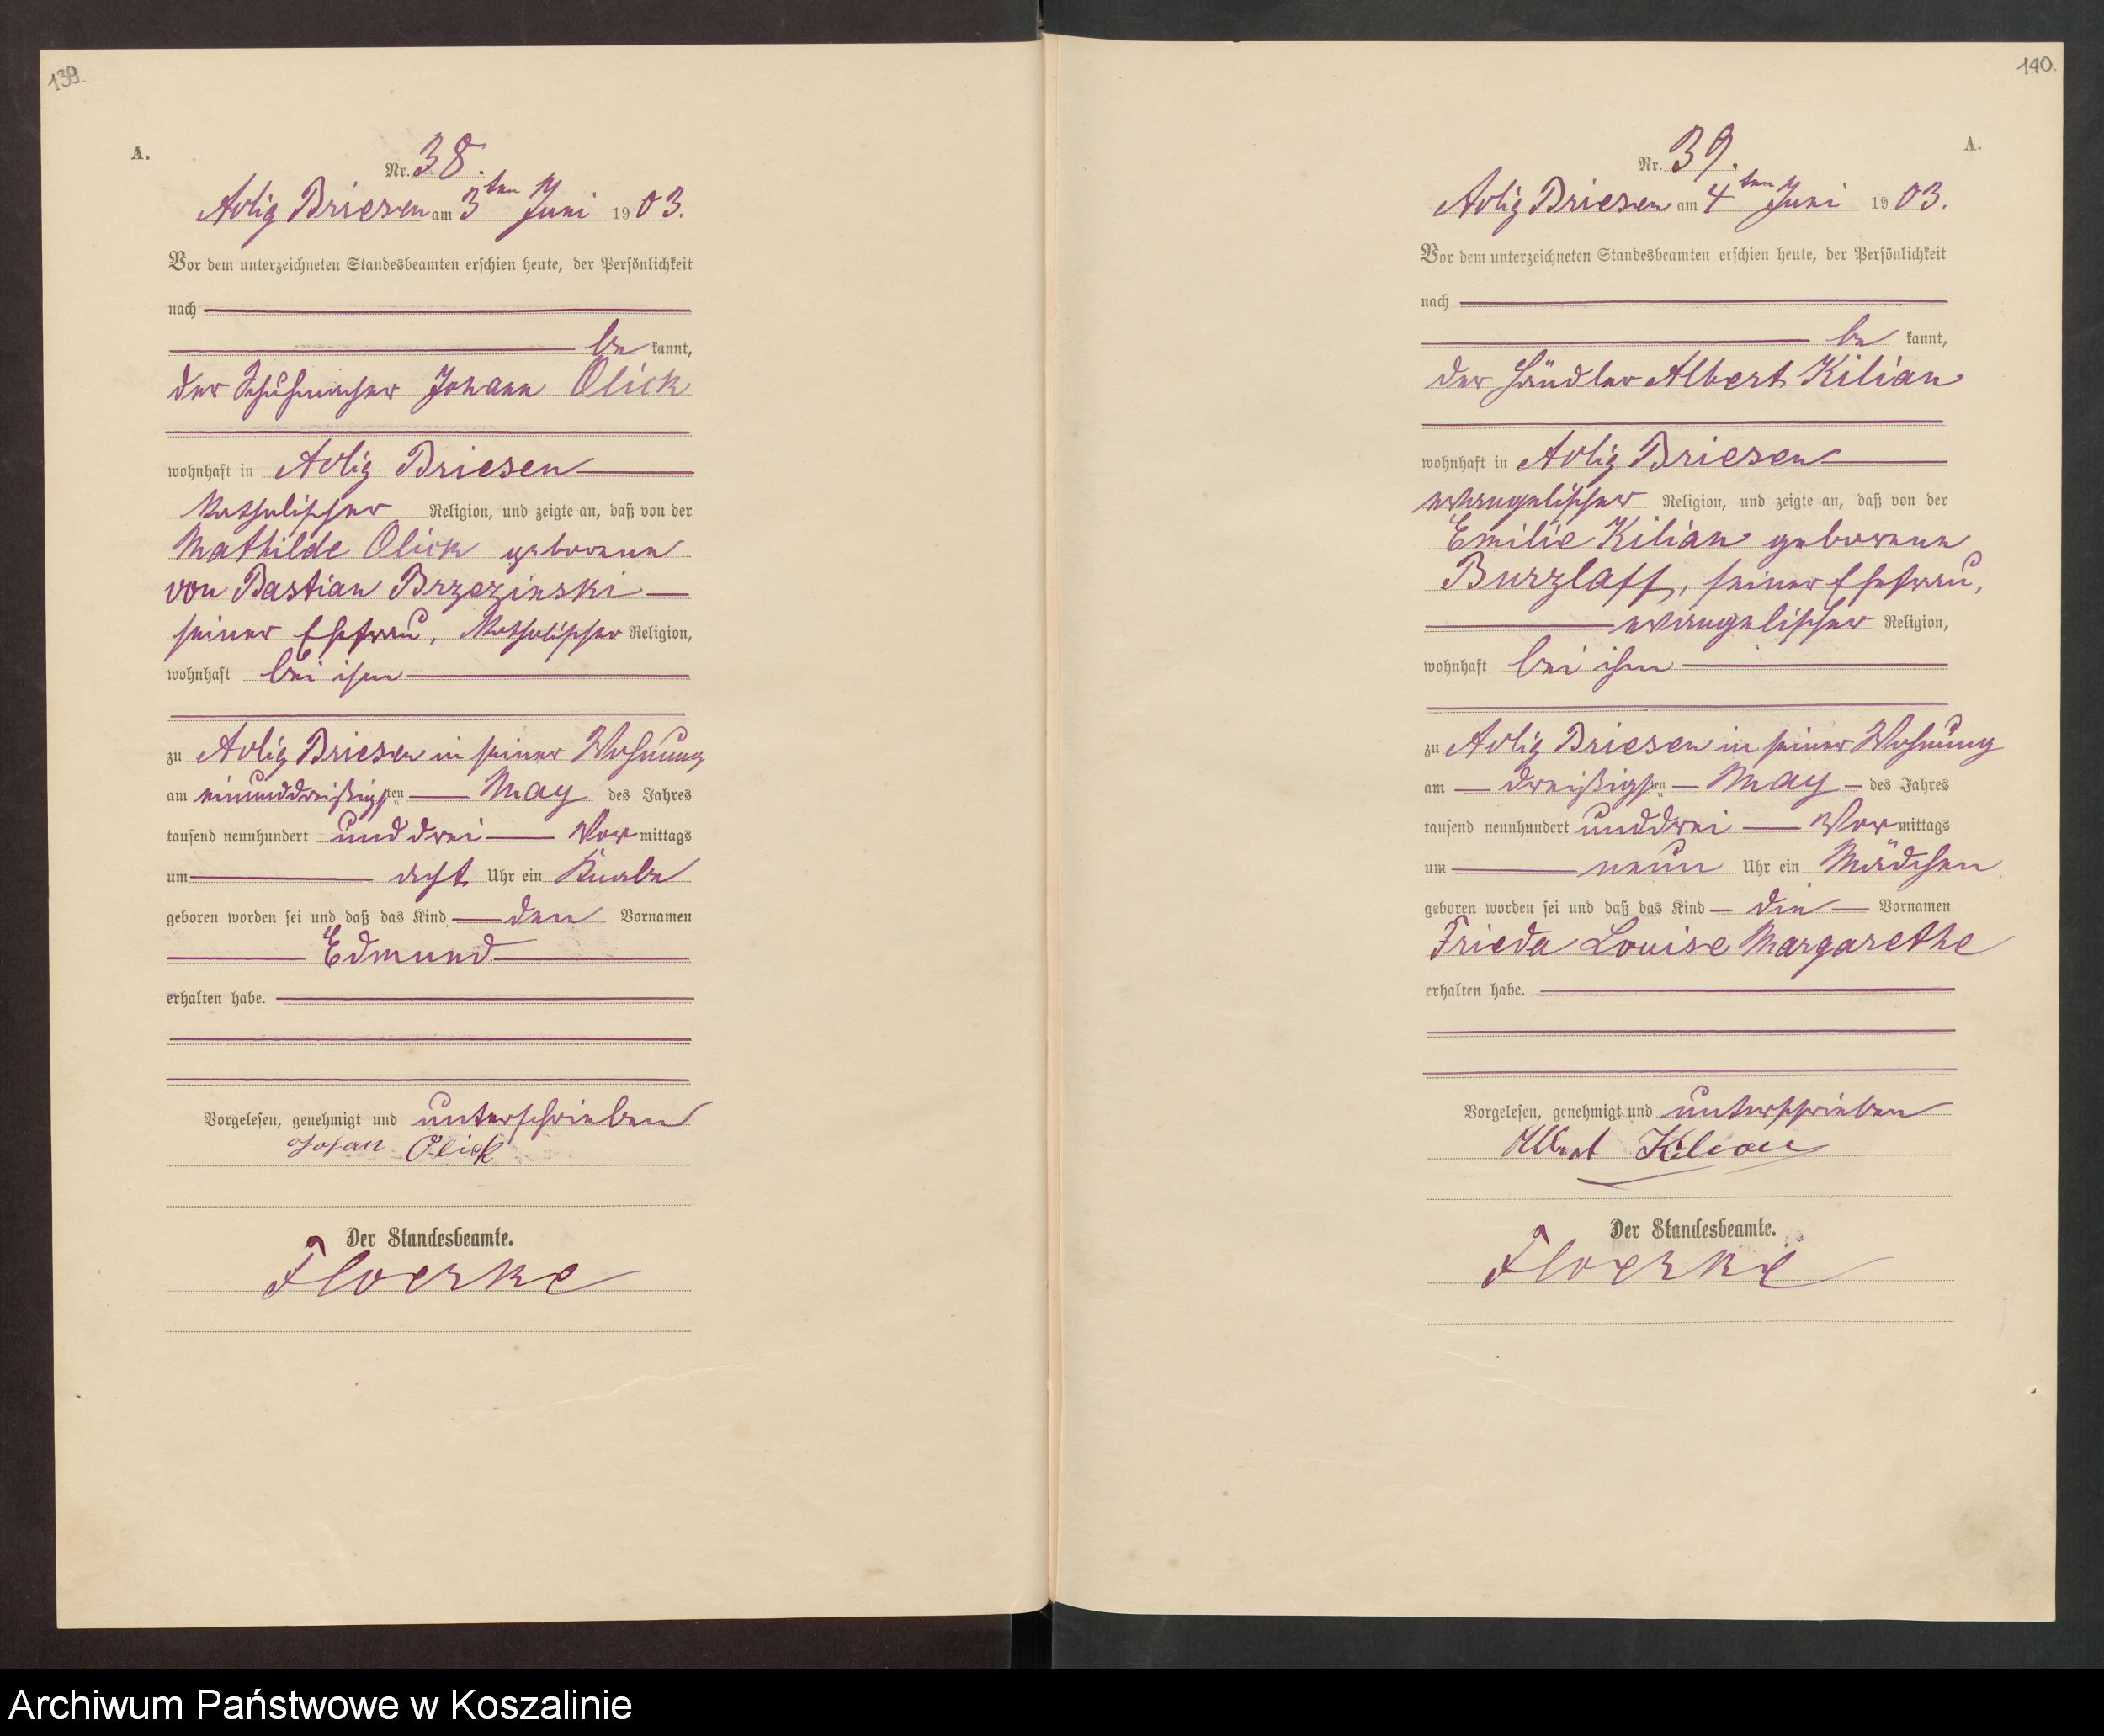 139.
A.
Nr. 38.
Adlig Briesen am 3ten Juni 1903.
Vor dem unterzeichneten Standesbeamten erschien heute, der Persönlichkeit
nach
be kannt,
der Schuhmacher Johann Olick
wohnhaft in Adlig Briesen
katholischer Religion, und zeigte an, daß von der
Mathilde Olick geborene
von Bastian Brzezinski
seiner Ehefrau, katholischer Religion,
wohnhaft bei ihm
zu Adlig Briesen in seiner Wohnung
am einunddreißigsten May des Jahres
tausend neunhundert und drei Vormittags
um acht Uhr ein Knabe
geboren worden sei und daß das Kind den Vornamen
Edmund
erhalten habe.
Vorgelesen, genehmigt und unterschrieben
Johan Olick
Der Standesbeamte.
Floerke
140.
A.
Nr. 39.
Adlig Briesen am 4ten Juni 1903.
Vor dem unterzeichneten Standesbeamten erschien heute, der Persönlichkeit
nach
be kannt,
der Händler Albert Kilian
wohnhaft in Adlig Briesen
evangelischer Religion, und zeigte an, daß von der
Emilie Kilian geborene
Burzlaff, seiner Ehefrau,
evangelischer Religion,
wohnhaft bei ihm
zu Adlig Briesen in seiner Wohnung
am dreißigsten May des Jahres
tausend neunhundert und drei Vormittags
um neun Uhr ein Mädchen
geboren worden sei und daß das Kind die Vornamen
Frieda Louise Margarethe
erhalten habe.
Vorgelesen, genehmigt und unterschrieben
Albert Kilian
Der Standesbeamte.
Floerke
Archiwum Państwowe w Koszalinie